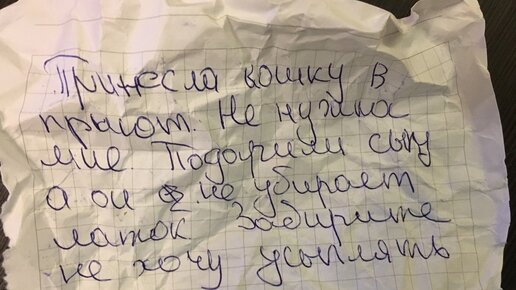 Принесла кошку в
прыот. Не нужна
мне. Подарили сыну
а он не убирает
латок Забирите
не хочу усыплять